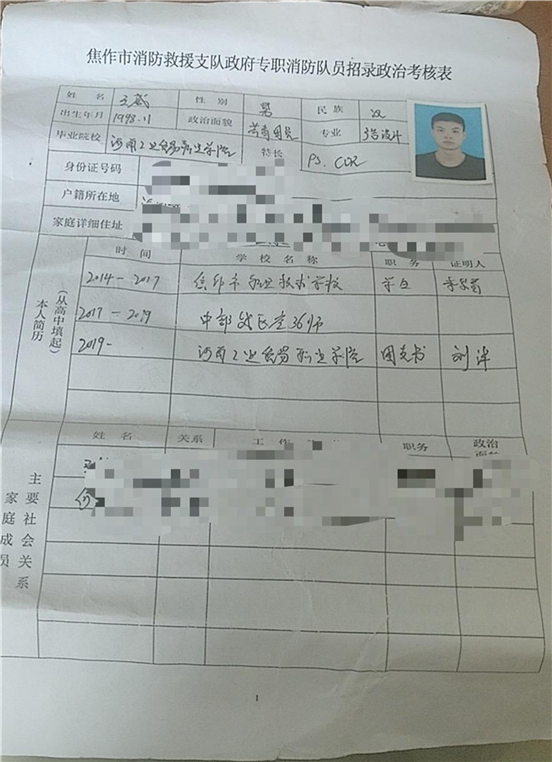 焦作市消防救援支队政府专职消防队员招录政治考核表
姓名 性别 男 民族 汉
出生年月 1998.11 政治面貌 共青团员 专业 设计
毕业院校 河南工业贸易职业学院 特长 PS. CDR
身份证号码
户籍所在地
家庭详细住址
本人简历
(从高中填起)
时间 学校名称 职务 证明人
2014-2017 焦作市职业技术学校 学生
2017-2019 中部战区空
2019- 河南工业贸易职业学院 团支书 刘洋
主要社会关系
家庭成员
姓名 关系 工作 职务 政治
1